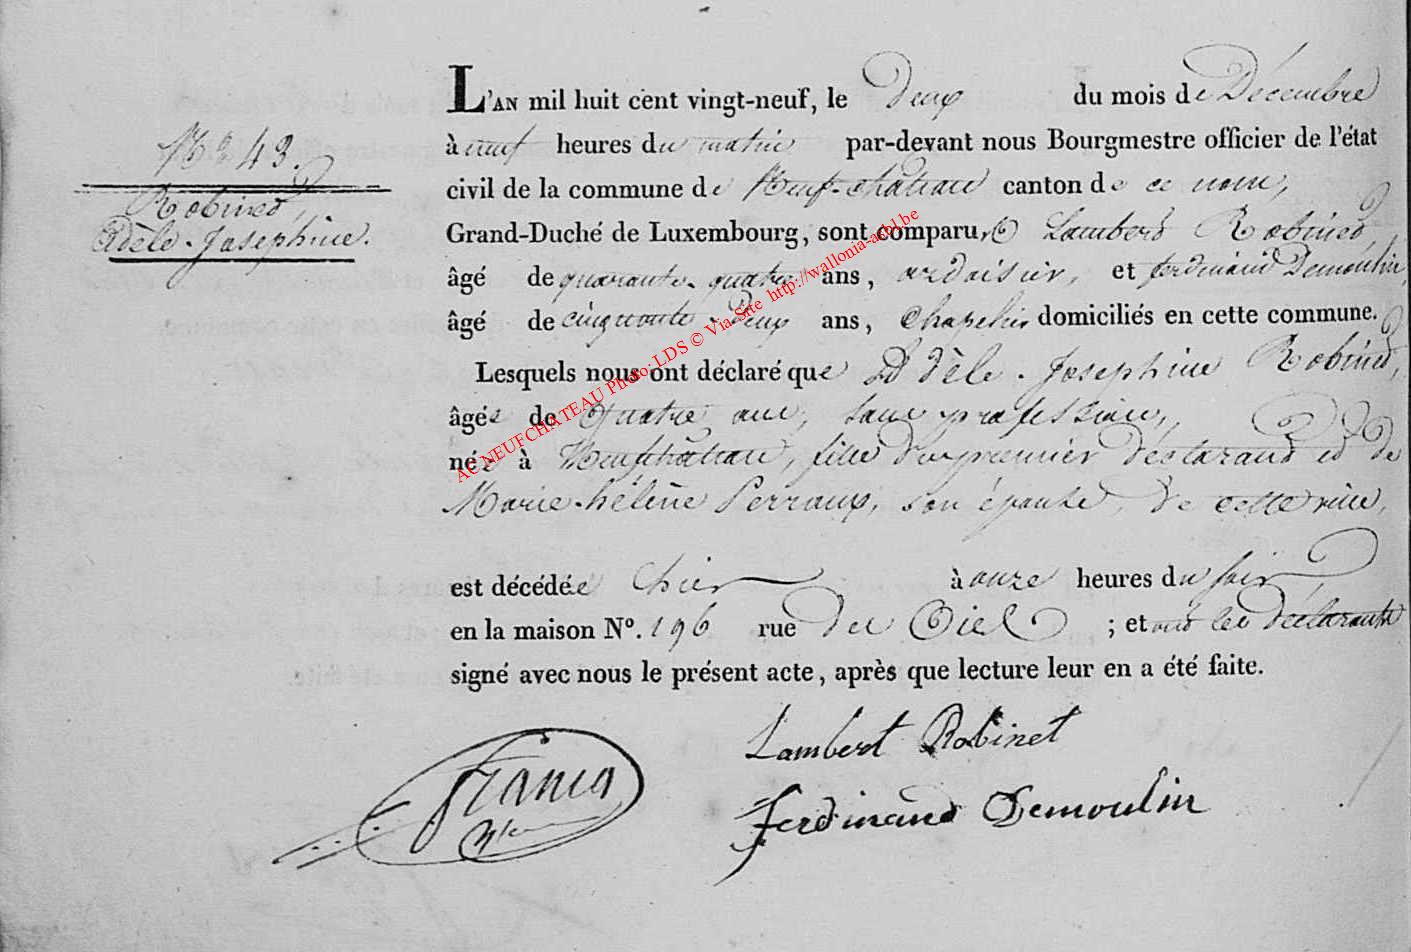 N° 43.
Robinet,
Adèle-Josephine.
L'AN mil huit cent vingt-neuf, le Deux du mois de Décembre
à neuf heures du matin par-devant nous Bourgmestre officier de l'état
civil de la commune de Neuf-chateau canton de ce nom,
Grand-Duché de Luxembourg, sont comparus Lambert Robinet,
âgé de quarante-quatre ans, ardoisier, et ferdinand Demoulin,
âgé de cinquante-Deux ans, Chapelier domiciliés en cette commune.
Lesquels nous ont déclaré que Adèle-Josephine Robinet,
âgée de Quatre ans, sans profession,
née à Neufchâteau, fille du premier déclarant et de
Marie-hélène Perraux, son épouse, de cette ville,
est décédée hier à onze heures du soir
en la maison N°. 196 rue du Ciel ; et ont les déclarants
signé avec nous le présent acte, après que lecture leur en a été faite.
Lambert Robinet
Ferdinand Demoulin
AC NEUFCHATEAU Photo: LDS © Via Site http://wallonia-asbl.be